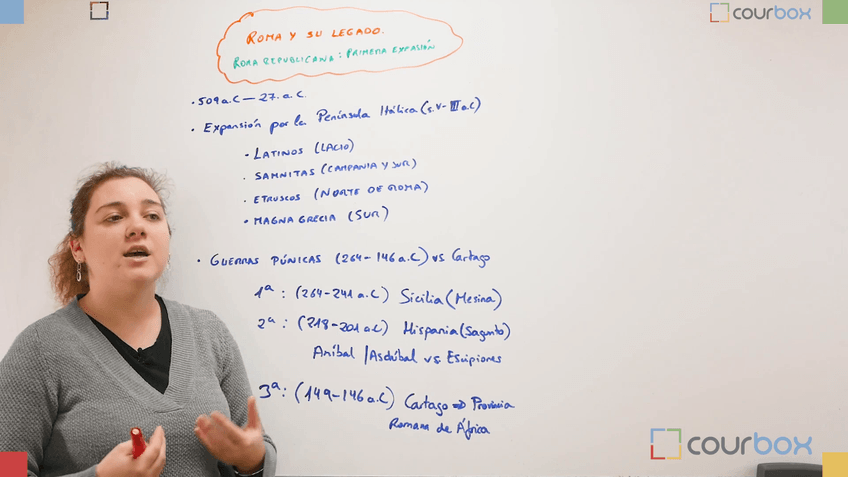 courbox
ROMA Y SU LEGADO.
ROMA REPUBLICANA: PRIMERA EXPASIÓN
· 509 a.C — 27. a.C.
· Expansión por la Península Itálica (s. V - III a.C)
· LATINOS (LACIO)
· SAMNITAS (CAMPANIA Y SUR)
· ETRUSCOS (NORTE DE ROMA)
· MAGNA GRECIA (SUR)
· GUERRAS PÚNICAS (264 - 146 a.C) vs Cartago
1ª : (264-241 a.C) Sicilia (Mesina)
2ª : (218-201 a.C) Hispania (Sagunto)
Aníbal / Asdrúbal vs Escipiones
3ª : (149-146 a.C) Cartago ⇒ Provincia
Romana de África
courbox